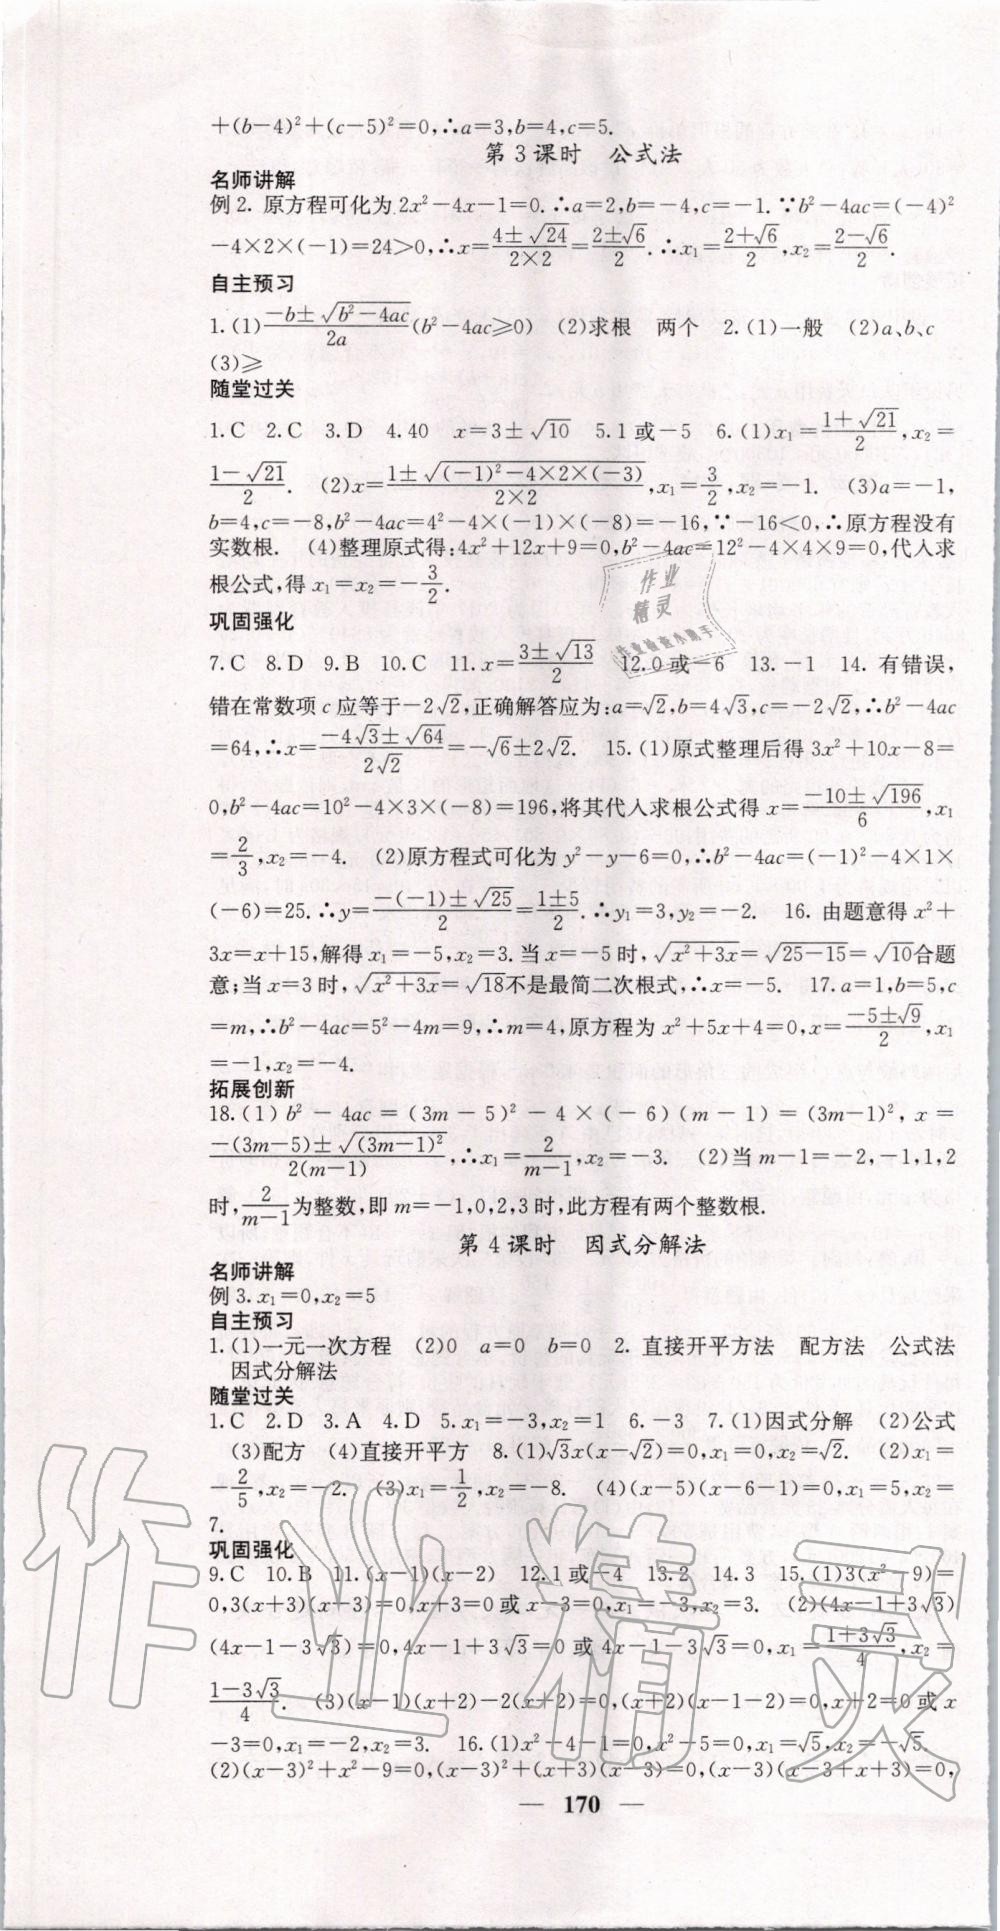 +(b-4)²+(c-5)²=0,∴a=3,b=4,c=5.
第3课时　公式法
名师讲解
例2. 原方程可化为2x²-4x-1=0.∴a=2,b=-4,c=-1.∵b²-4ac=(-4)²
-4×2×(-1)=24>0,∴x=(4±√24)/(2×2)=(2±√6)/2.∴x₁=(2+√6)/2,x₂=(2-√6)/2.
自主预习
1.(1)(-b±√(b²-4ac))/(2a)(b²-4ac≥0)　(2)求根　两个　2.(1)一般　(2)a、b、c
(3)≥
随堂过关
1.C　2.C　3.D　4.40　x=3±√10　5.1或-5　6.(1)x₁=(1+√21)/2,x₂=
(1-√21)/2.　(2)x=(1±√((-1)²-4×2×(-3)))/(2×2),x₁=3/2,x₂=-1.　(3)a=-1,
b=4,c=-8,b²-4ac=4²-4×(-1)×(-8)=-16,∵-16<0,∴原方程没有
实数根.　(4)整理原式得:4x²+12x+9=0,b²-4ac=12²-4×4×9=0,代入求
根公式,得x₁=x₂=-3/2.
巩固强化
7.C　8.D　9.B　10.C　11.x=(3±√13)/2　12.0或-6　13.-1　14. 有错误,
错在常数项c应等于-2√2,正确解答应为:a=√2,b=4√3,c=-2√2,∴b²-4ac
=64,∴x=(-4√3±√64)/(2√2)=-√6±2√2.　15.(1)原式整理后得3x²+10x-8=
0,b²-4ac=10²-4×3×(-8)=196,将其代入求根公式得x=(-10±√196)/6,x₁
=2/3,x₂=-4.　(2)原方程式可化为y²-y-6=0,∴b²-4ac=(-1)²-4×1×
(-6)=25.∴y=(-(-1)±√25)/2=(1±5)/2.∴y₁=3,y₂=-2.　16. 由题意得x²+
3x=x+15,解得x₁=-5,x₂=3.当x=-5时,√(x²+3x)=√(25-15)=√10合题
意;当x=3时,√(x²+3x)=√18不是最简二次根式,∴x=-5.　17.a=1,b=5,c
=m,∴b²-4ac=5²-4m=9,∴m=4,原方程为x²+5x+4=0,x=(-5±√9)/2,x₁
=-1,x₂=-4.
拓展创新
18.(1)b²-4ac=(3m-5)²-4×(-6)(m-1)=(3m-1)²,x=
(-(3m-5)±√(3m-1)²)/(2(m-1)),∴x₁=2/(m-1),x₂=-3.　(2)当m-1=-2,-1,1,2
时,2/(m-1)为整数,即m=-1,0,2,3时,此方程有两个整数根.
第4课时　因式分解法
名师讲解
例3.x₁=0,x₂=5
自主预习
1.(1)一元一次方程　(2)0　a=0　b=0　2. 直接开平方法　配方法　公式法
因式分解法
随堂过关
1.C　2.D　3.A　4.D　5.x₁=-3,x₂=1　6.-3　7.(1)因式分解　(2)公式
(3)配方　(4)直接开平方　8.(1)√3x(x-√2)=0,x₁=0,x₂=√2.　(2)x₁=
-2/5,x₂=-2.　(3)x₁=1/2,x₂=-8.　(4)(x-5)(x-6-1)=0,x₁=5,x₂=
7.
巩固强化
9.C　10.B　11.(x-1)(x-2)　12.1或-4　13.2　14.3　15.(1)3(x²-9)=
0,3(x+3)(x-3)=0,x+3=0或x-3=0,x₁=-3,x₂=3.　(2)(4x-1+3√3)
(4x-1-3√3)=0,4x-1+3√3=0或4x-1-3√3=0,x₁=(1+3√3)/4,x₂=
(1-3√3)/4.　(3)(x-1)(x+2)-2(x+2)=0,(x+2)(x-1-2)=0,x+2=0或x
-3=0,x₁=-2,x₂=3.　16.(1)x²-4-1=0,x²-5=0,x₁=√5,x₂=-√5.
(2)(x-3)²+x²-9=0,(x-3)²+(x+3)(x-3)=0,(x-3)(x-3+x+3)=0,
— 170 —
作业
精灵
作业检查小助手
作业精灵